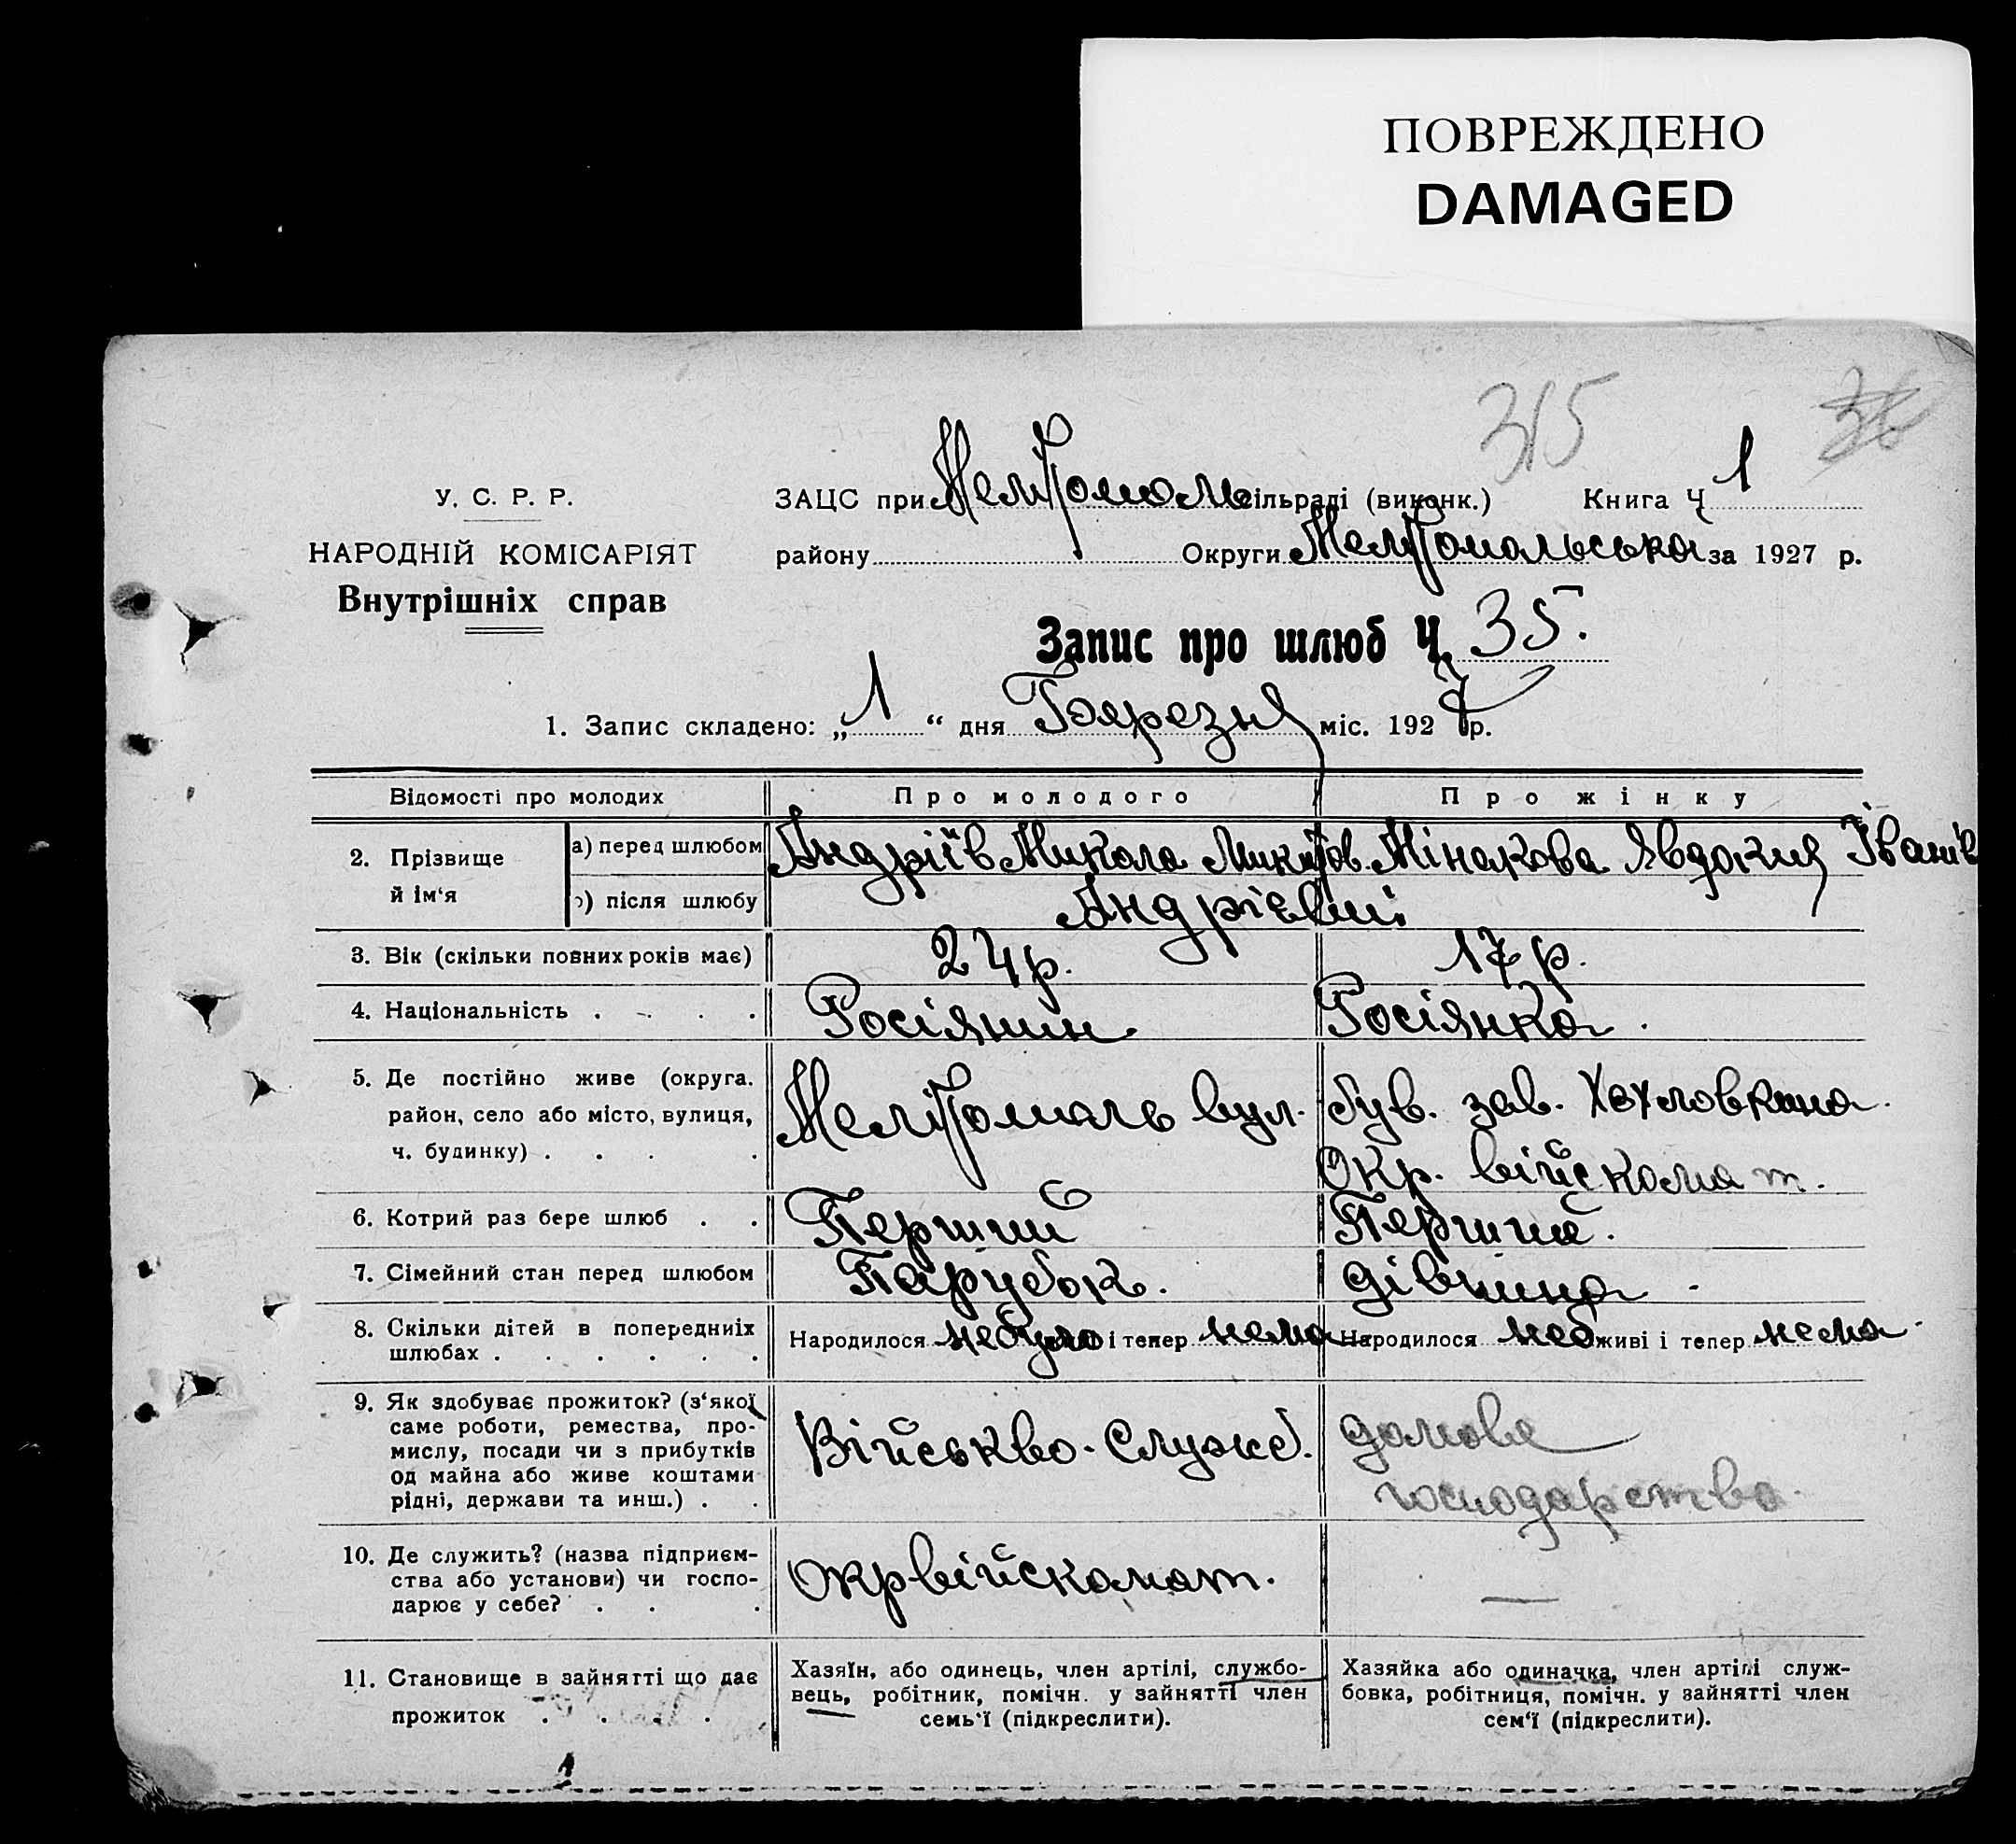 ПОВРЕЖДЕНО
DAMAGED
315
36
У. С. Р. Р.
НАРОДНІЙ КОМІСАРІЯТ
Внутрішніх справ
ЗАЦС при Мелітополь сільраді (виконк.) Книга Ч 1
району Округи Мелітопольська за 1927 р.
Запис про шлюб Ч. 35.
1. Запис складено: „ 1 “ дня Березня міс. 1927 р.
Відомості про молодих Про молодого Про жінку
2. Прізвище й ім‘я
а) перед шлюбом Андріїв Микола Микитов. Мінакова Явдокия Іванів
б) після шлюбу Андрієви.
3. Вік (скільки повних років має) 24 р. 17 р.
4. Національність . . . . Росіянин Росіянка.
5. Де постійно живе (округа. Мелітополь вул. був. зав. Хохловкина.
район, село або місто, вулиця,
ч. будинку) . . . . Окр. військомат.
6. Котрий раз бере шлюб . . Перший Перший.
7. Сімейний стан перед шлюбом Парубок. дівчина.
8. Скільки дітей в попередниіх
шлюбах . . . . . . Народилося небуло і тепер нема Народилося неб живі і тепер нема.
9. Як здобуває прожиток? (з‘якої
саме роботи, ремества, про-
мислу, посади чи з прибутків
од майна або живе коштами
рідні, держави та инш.) . .
Військво-Служб.
домове
господарство.
10. Де служить? (назва підприєм-
ства або установи) чи госпо-
дарює у себе? . . .
Окрвійскомат.
—
11. Становище в зайнятті що дає
прожиток . . . .
Хазяїн, або одинець, член артілі, службо-
вець, робітник, помічн. у зайнятті член
семь‘ї (підкреслити).
Хазяйка або одиначка, член артілі служ-
бовка, робітниця, помічн. у зайнятті член
сем‘ї (підкреслити).